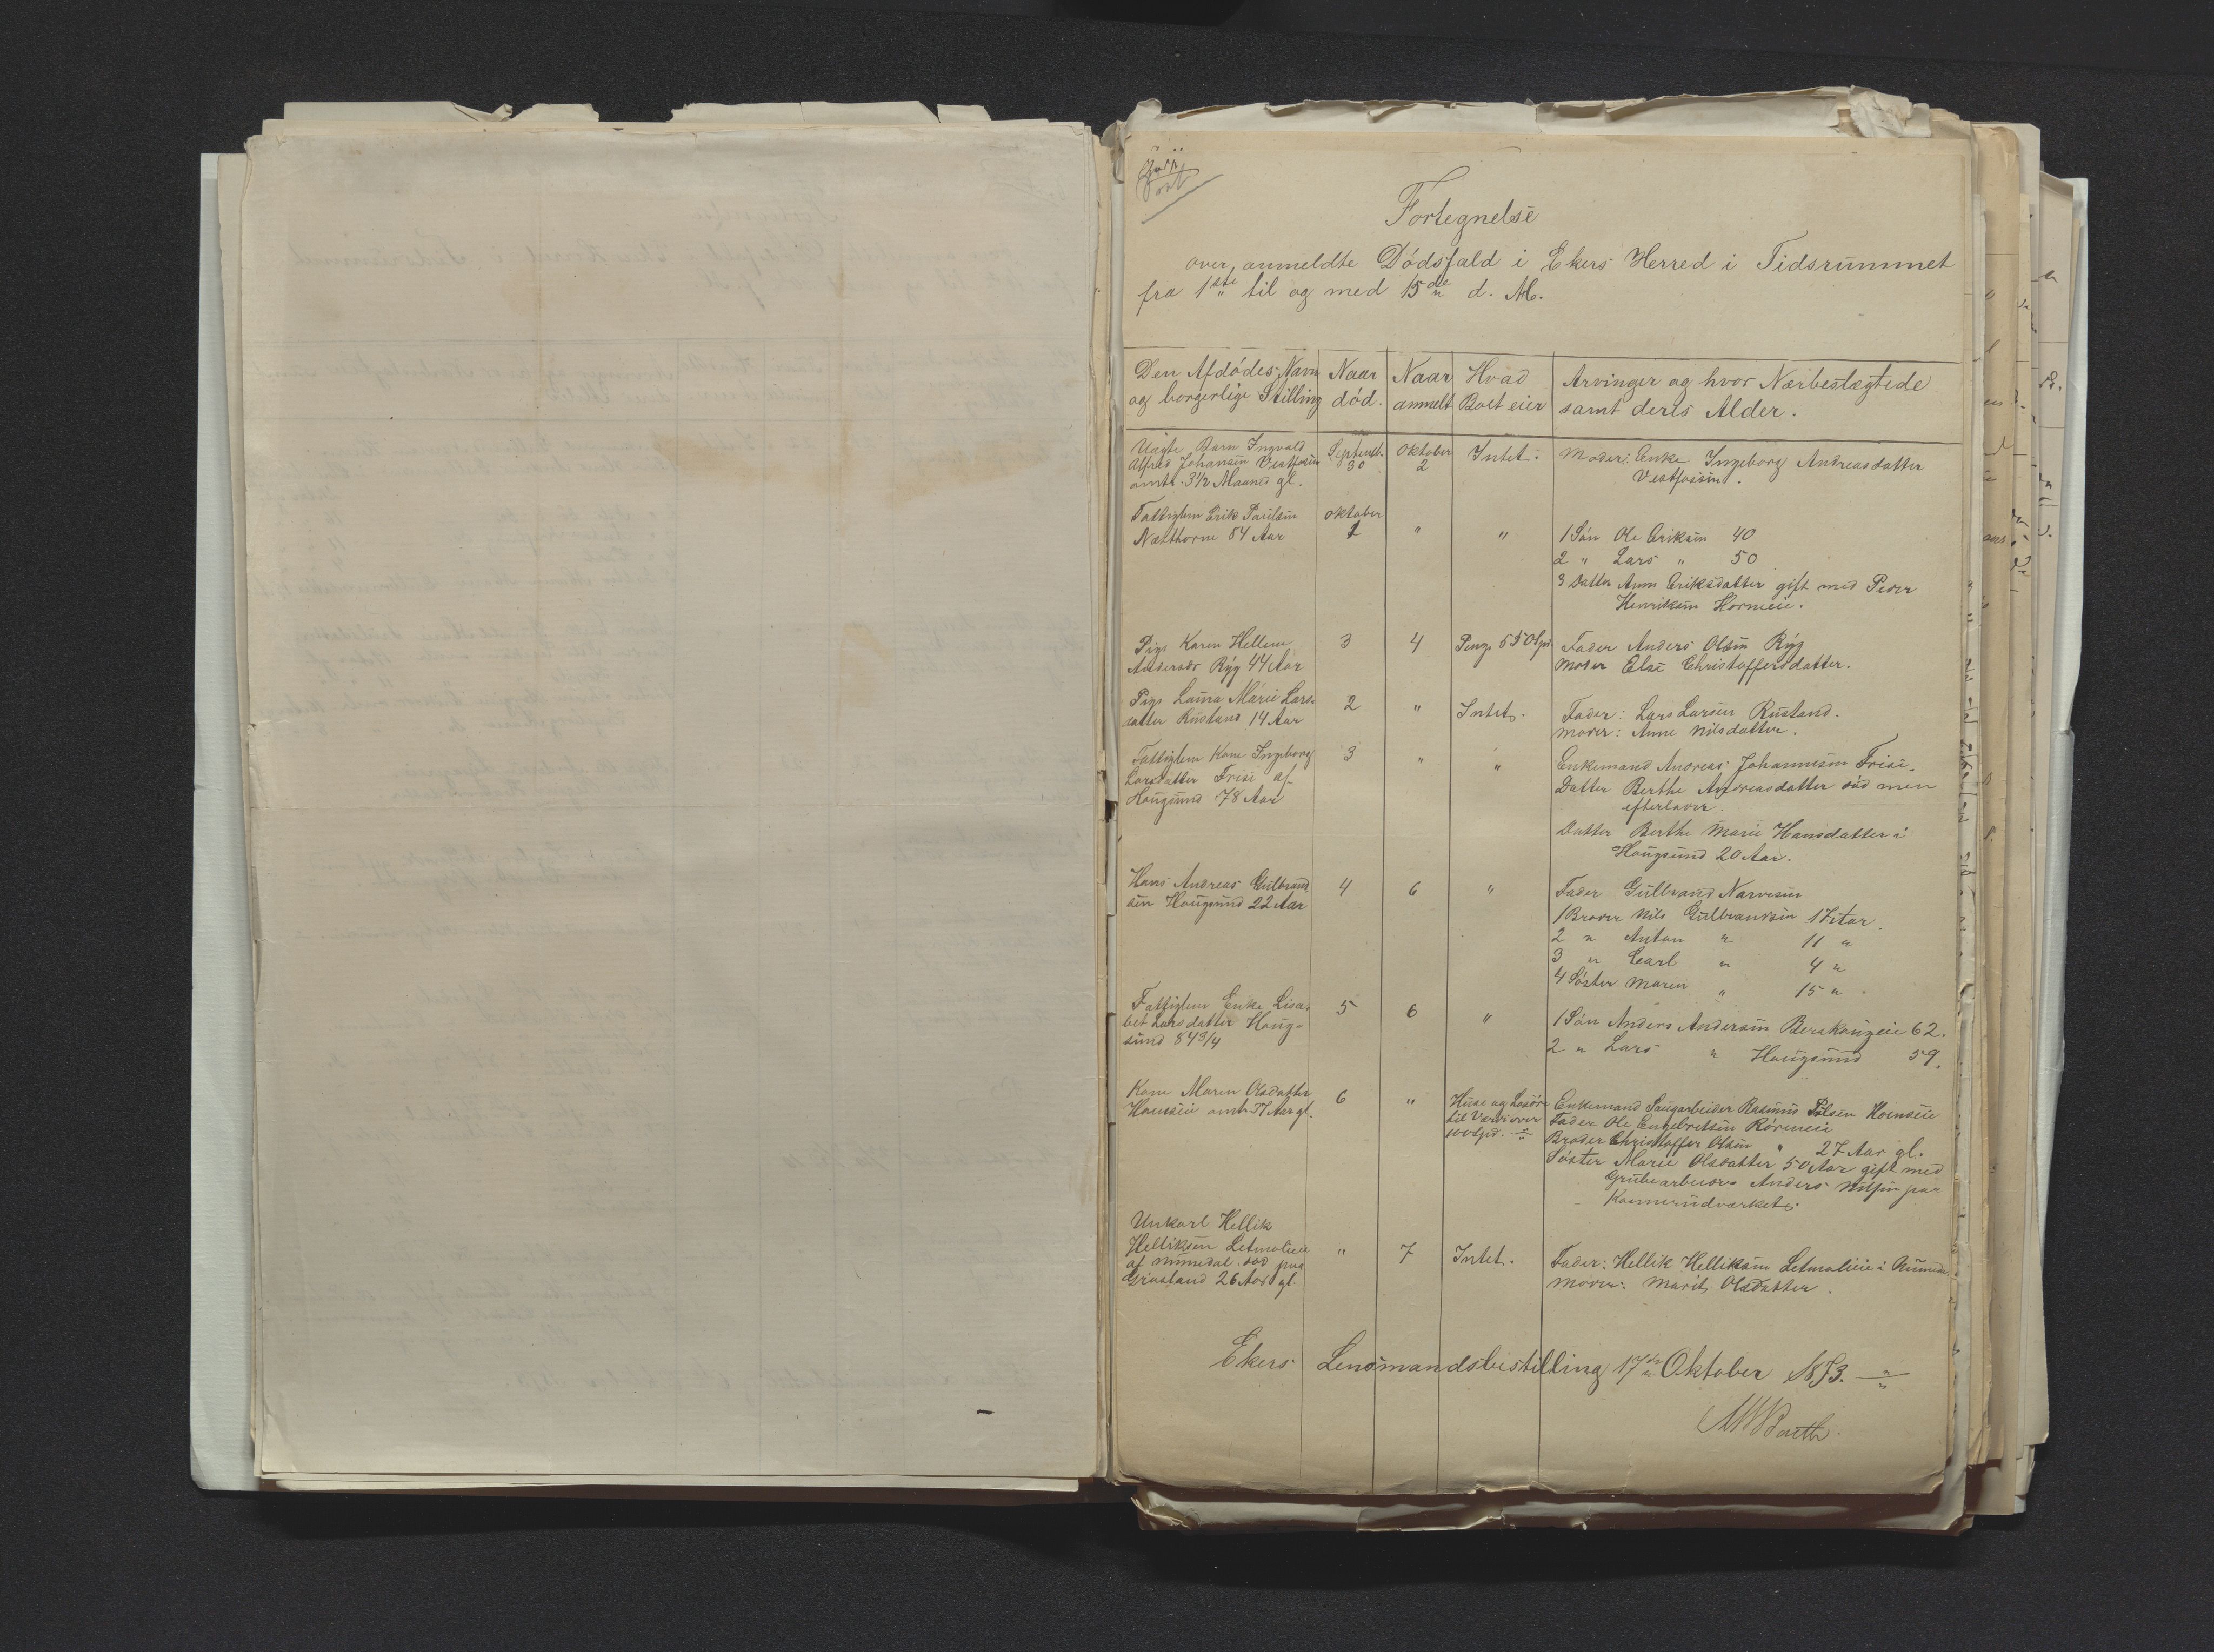 Fortegnelse
over anmeldte Dödsfald i Ekers Herred i Tidsrummet
fra 1ste til og med 15de d. M.
Den Afdödes Navn
og borgerlige Stilling
Naar
död.
Naar
anmelt
Hvad
Boet eier
Arvinger og hvor Nærbeslægtede
samt deres Alder.
Uægte Barn Ingvald
Alfred Johansen Vestfossen
omtr. 3½ Maaned gl.
Septemb.
30
Oktober
2
Intet.
Moder: Enke Ingeborg Andreasdatter
Vestfossen.
Fattiglem Erik Paulsen
84 Aar
Oktober
1
"
"
1 Sön Ole Eriksen 40
2 " Lars " 50
3 Datter Anne Eriksdatter gift med Peder
Henriksen Horneeie.
Pige Karen Hellene
Andersdr Ryg 44 Aar
3
4
Penge 550 Spd
Fader Anders Olsen Ryg
Moder Else Christoffersdatter.
Pige Laura Marie Lars-
datter Rustand 14 Aar
2
"
Intet.
Fader: Lars Larsen Rustand.
Moder: Anne Nilsdatter.
Fattiglem Kone Ingeborg
Larsdatter Frise af
Hougsund 78 Aar
3
"
"
Enkemand Andreas Johannesen Frise.
Datter Berthe Andreasdatter död men
efterlader
Datter Berthe Marie Hansdatter i
Hougsund 20 Aar.
Hans Andreas Gulbrand
sen Hougsund 22 Aar
4
6
"
Fader Gulbrand Narvesen
1 Broder Nils Gulbrandsen 17 Aar.
2 " Anton " 11 "
3 " Carl " 4 "
4 Söster Maren " 15 "
Fattiglem Enke Lisa-
bet Larsdatter Houg-
sund 84 3/4
5
6
"
1 Sön Anders Andersen 62.
2 " Lars " Hougsund 59.
Kone Maren Olsdatter
Hoenseie omtr. 57 Aar gl.
6
"
Huse og Lösöre
til Værdi over
100 Spd.
Enkemand Saugarbeider Rasmus Pålsen Hoenseie
Fader Ole Engebretsen
Broder Christoffer Olsen " 27 Aar gl.
Söster Marie Olsdatter 50 Aar gift med
Grubearbeider Anders Nilsen paa
Konnerudværket.
Unkarl Hellik
Helliksen Letmolieie
af Numedal död paa
26 Aar gl.
"
7
Intet.
Fader: Hellik Helliksen Letmolieie i Numedal
Moder: Marit Olsdatter.
Ekers Lensmandsbestilling 17de Oktober 1873.